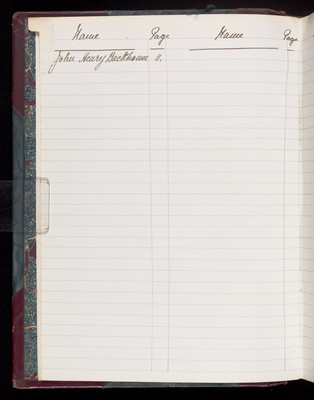 Name Page Name Page
John Henry Backhouse 11.